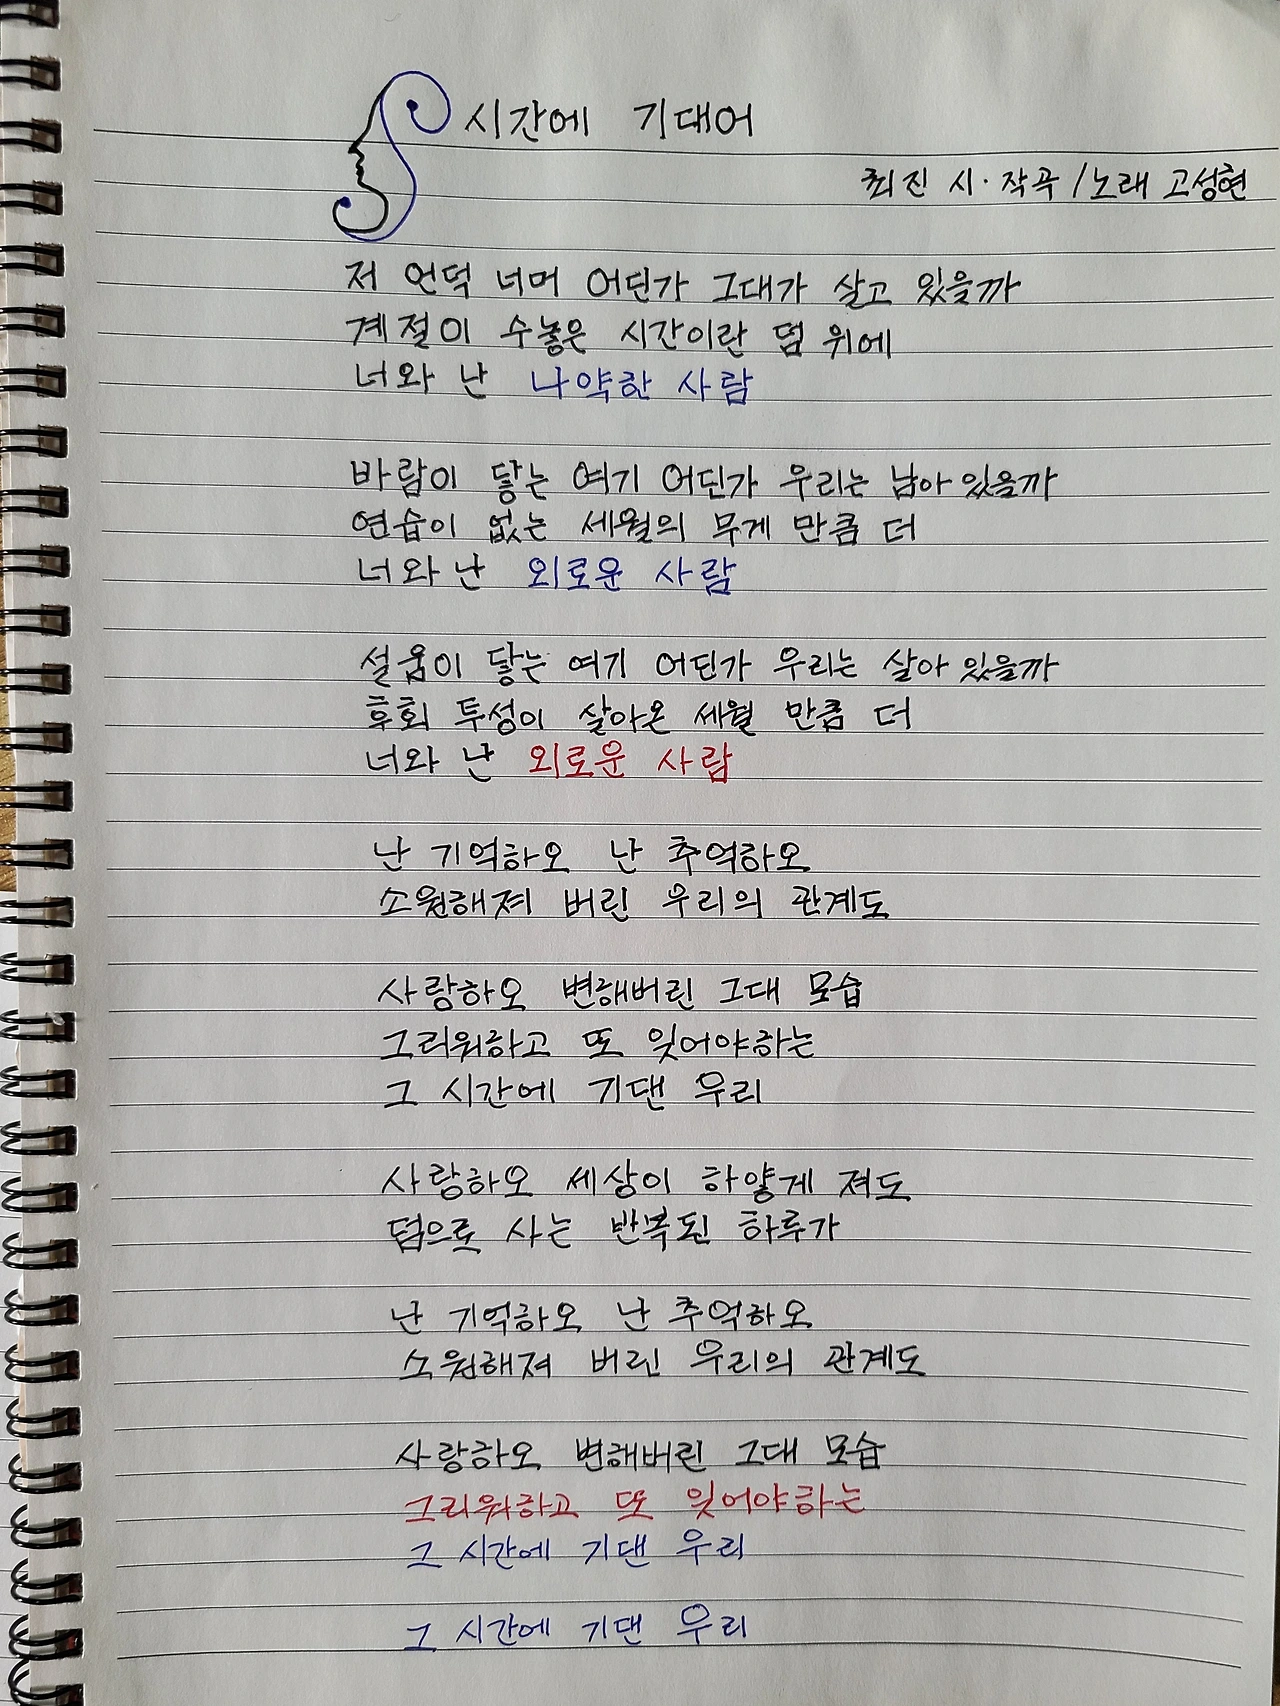 시간에 기대어
최진 시·작곡 / 노래 고성현
저 언덕 너머 어딘가 그대가 살고 있을까
계절이 수놓은 시간이란 덤 위에
너와 난 나약한 사람
바람이 닿는 여기 어딘가 우리는 남아 있을까
연습이 없는 세월의 무게 만큼 더
너와 난 외로운 사람
설움이 닿는 여기 어딘가 우리는 살아 있을까
후회 투성이 살아온 세월 만큼 더
너와 난 외로운 사람
난 기억하오 난 추억하오
소원해져 버린 우리의 관계도
사랑하오 변해버린 그대 모습
그리워하고 또 잊어야하는
그 시간에 기댄 우리
사랑하오 세상이 하얗게 져도
덤으로 사는 반복된 하루가
난 기억하오 난 추억하오
소원해져 버린 우리의 관계도
사랑하오 변해버린 그대 모습
그리워하고 또 잊어야하는
그 시간에 기댄 우리
그 시간에 기댄 우리